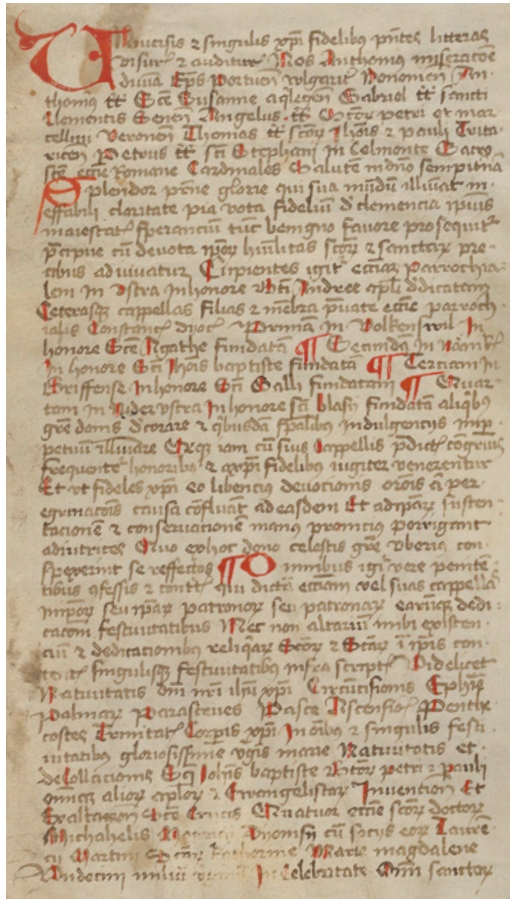 Universis & singulis xpi fidelibus pntes litteras
visur & auditur Nos Anthonius miseracoe
divina Eps Portuen vulgarit Bononien An-
thonius tt Sce Susanne aqlegen Gabriel tt sancti
Clementis Senen Angelus tt Sctor petri et mar
cellini Veronen Thomas tt sctor Jhois & pauli Trica
ricen Petrus tt sci Stephani in Celimonte
ste egie Romane Cardinales Salutem in dno sempitna
Splendor pne glorie qui sua mundu illuiat in
effabili claritate pia vota fidelium d clementia ipius
maiestat sperancium tuc benigno favore prosequit
precipue cu devota ipor huilitas sctor & sanctar pre
cibus adiuvatur Cupientes igit ecciam parrochia
lem in Ustra in honore bti Andree apli dedicatam
Ceterasq cappellas filias & membra pnate eccie parroch
ialis Constancien dyoc Primam in Volkenswil In
honore Sce Agathe fundata ¶ Secundam in
In honore Sci Jhois baptiste fundata ¶ Terciam in
Griffense In honore Sci Galli fundatam ¶ Quar
tam in Nider ustra In honore sci Blasii fundata aliqbus
gre donis dcorare & qbusda spualibus indulgenciis inp
petuu illuiare Utq iam cu suis cappellis pdict congruis
frequentet honoribus & axpi fidelibus iugiter venerentur
Et ut fideles xpi eo libencius devocionis oronis ci per
egrinacois causa confluat ad easdem Et ad ipar susten
tacionem & conservacionem manus promcius porrigant
adiutrices Quo ex hoc dono celestis gre uberius con
spexerint se reffectos ¶ Omnibus igit vere peniten
tibus cfessis & contt qui dicta eccliam vel suas cappellas
in ipor seu ipar patronor seu patronar earumq dedi
cacom festivitatibus Nec non altarium inibi existen
ciu & dedicacionibus reliqar Sctor & Sctar i ipis con
tent singulisq festivitatibus infra script Videlicet
Nativitatis dni nri ihu xpi Circumcisionis Ephie
Palmar Parasceves Pasce Ascensio Penthe
costes Trinitat Corpis xpi In oibus & singulis festi
vitatibus gloriosissime vgis marie Nativitatis et
decollacionis Sci Johis baptiste Btor petri & pauli
omniq alior aplor & Ewangelistar Invention Et
Exaltacion Sce Crucis Quatuor eccie scor doctor
Michahelis Dionisii cu sociis eor Lauren
cii Martini Sctar Katherine Marie magdalene
Undecim miliu In Celebritate Omi sanctor